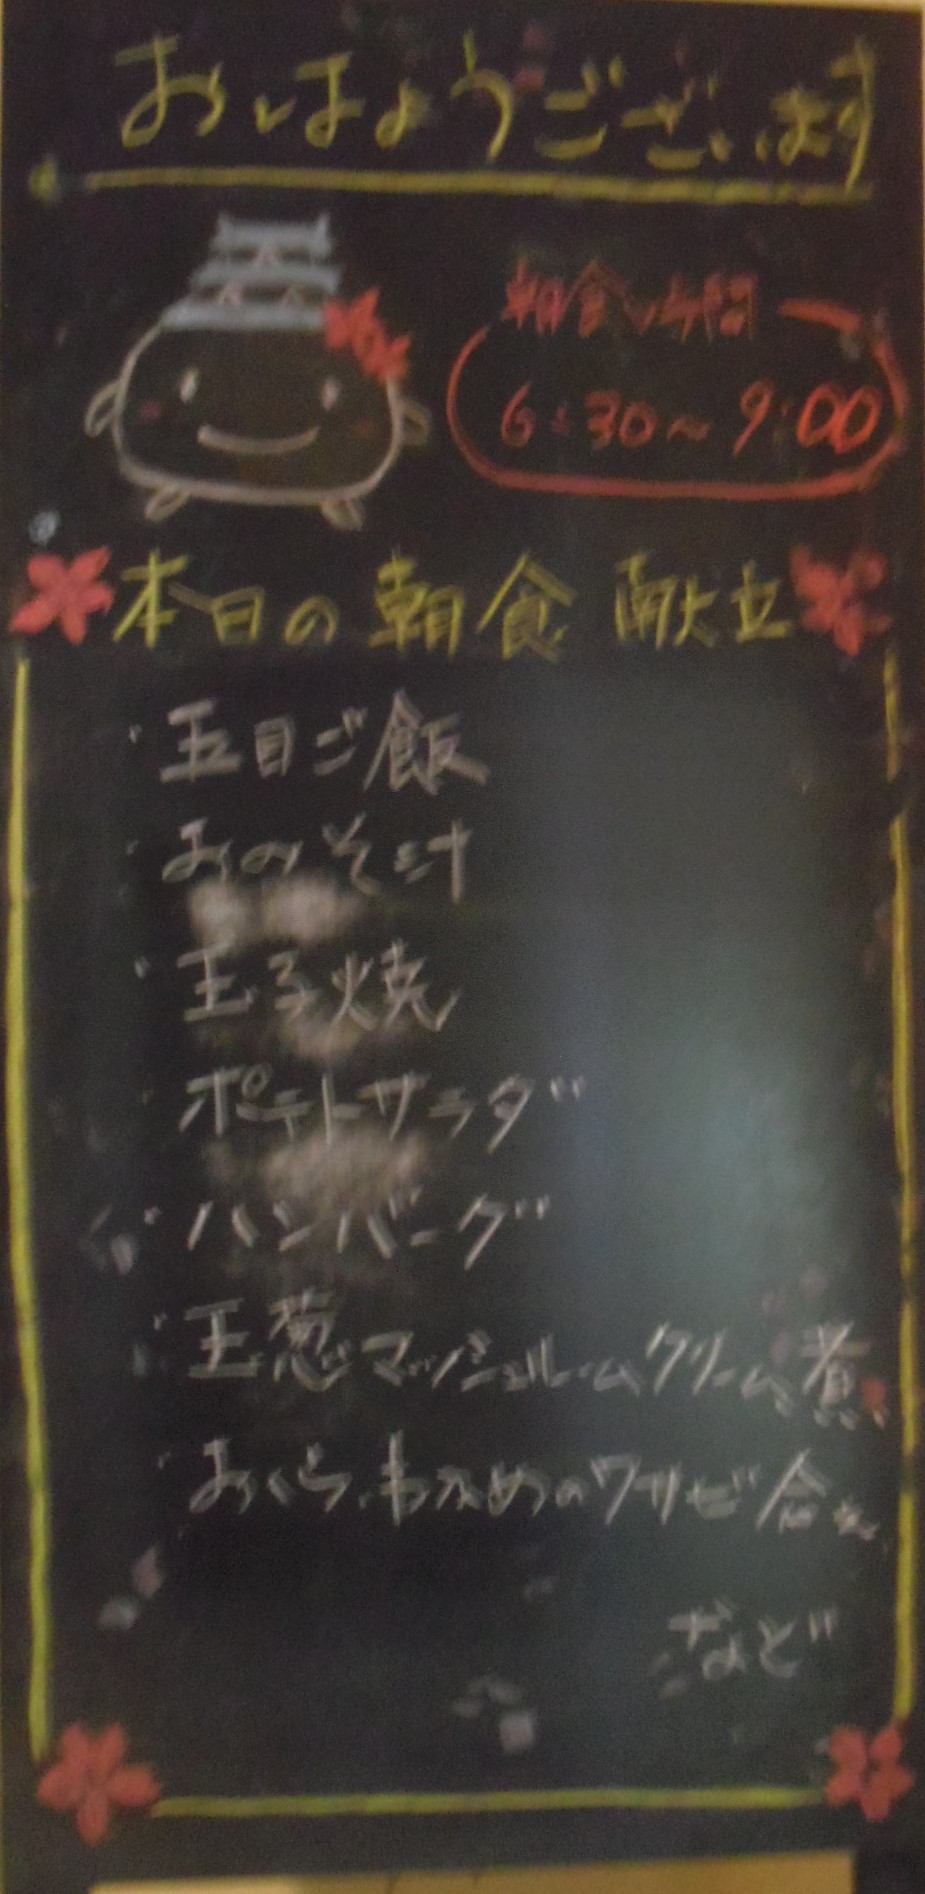 おはようございます
朝食時間
6:30〜9:00
本日の朝食献立
・五目ご飯
・おみそ汁
・玉子焼
・ポテトサラダ
・ハンバーグ
・玉葱マッシュルームクリーム煮
・おくら、わかめのワサビ合え
など